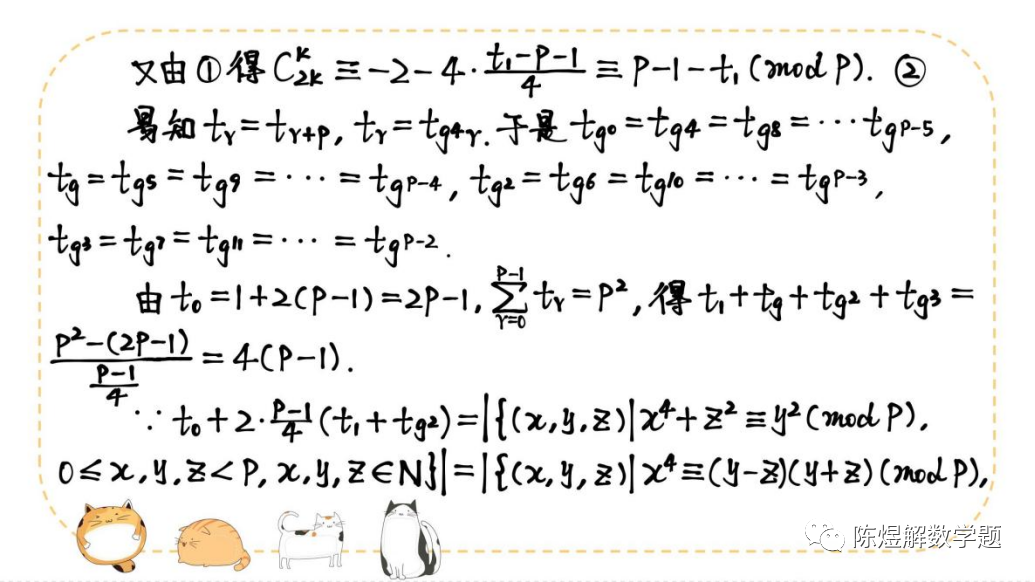 又由①得 C_{2k}^{k} ≡ -2-4·\frac{t_1-p-1}{4} ≡ p-1-t_1 (mod p). ②
易知 t_r = t_{r+p}, t_r = t_{g^4 r}. 于是 t_{g^0} = t_{g^4} = t_{g^8} = ⋯ t_{g^{p-5}},
t_g = t_{g^5} = t_{g^9} = ⋯ = t_{g^{p-4}}, t_{g^2} = t_{g^6} = t_{g^{10}} = ⋯ = t_{g^{p-3}},
t_{g^3} = t_{g^7} = t_{g^{11}} = ⋯ = t_{g^{p-2}}.
由 t_0 = 1+2(p-1) = 2p-1, \sum_{r=0}^{p-1} t_r = p^2, 得 t_1+t_g+t_{g^2}+t_{g^3} =
\frac{p^2-(2p-1)}{\frac{p-1}{4}} = 4(p-1).
∵ t_0+2·\frac{p-1}{4}(t_1+t_{g^2}) = |{(x,y,z)|x^4+z^2≡y^2(mod p),
0≤x,y,z<p, x,y,z∈N}| = |{(x,y,z)|x^4≡(y-z)(y+z)(mod p),
陈煜解数学题